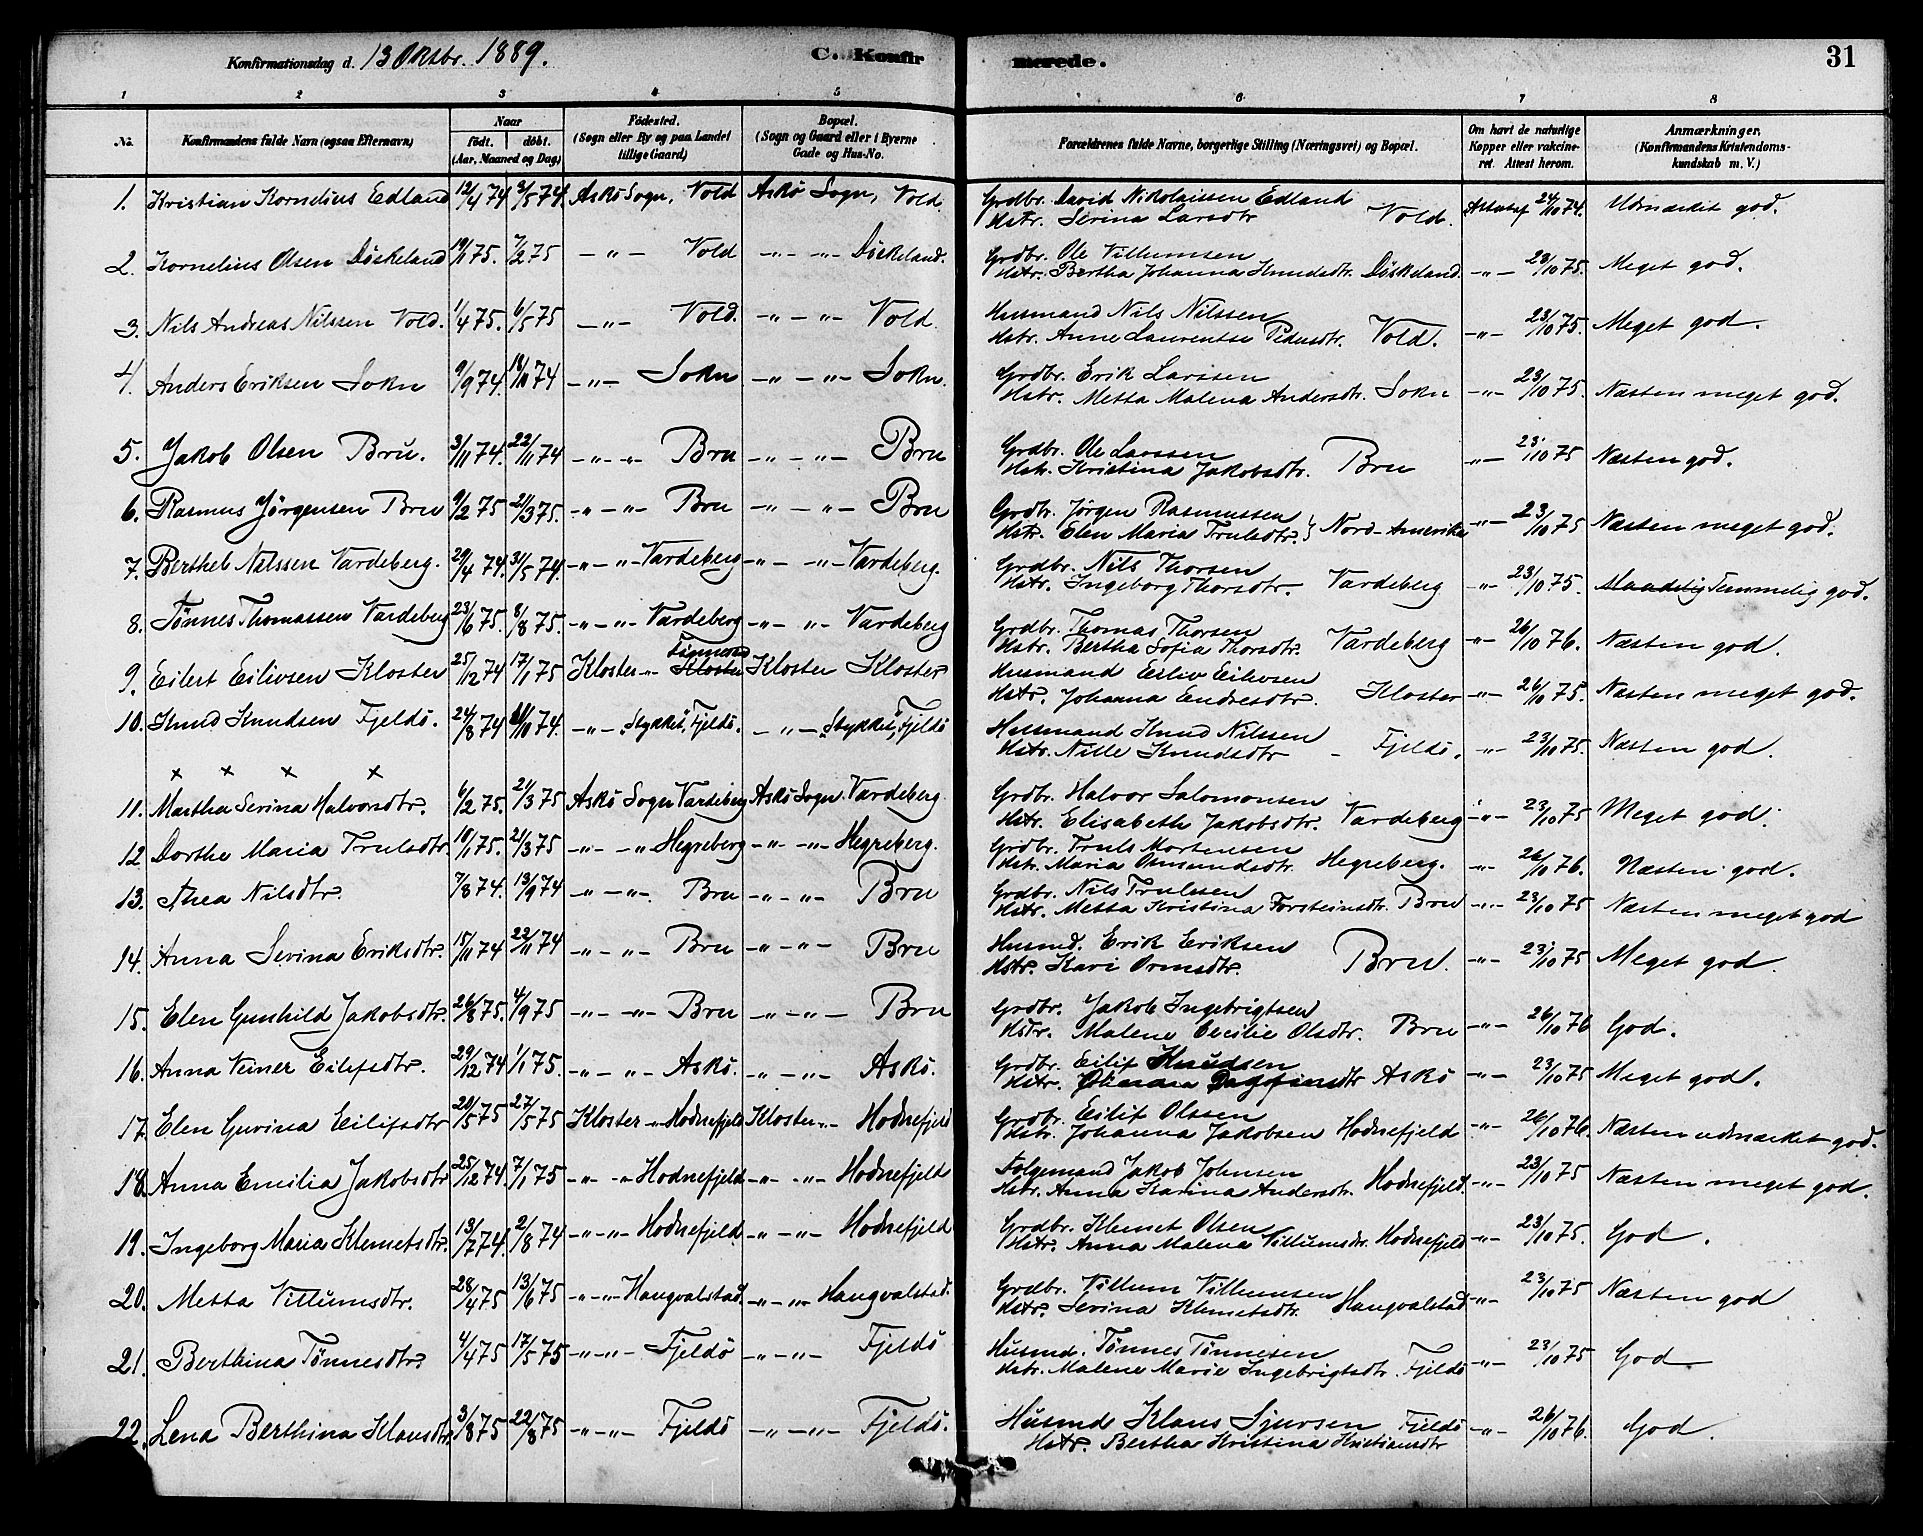 Konfirmationsdag d. 13 Oktbr. 1889. C. Konfirmerede. 31
1 2 3 4 5 6 7 8
No. Konfirmandens fulde Navn (ogsaa Efternavn) Naar født. døbt. (Aar, Maaned og Dag) Fødested. (Sogn eller By og paa Landet tillige Gaard) Bopæl. (Sogn og Gaard eller i Byerne Gade og Hus-No. Forældrenes fulde Navne, borgerlige Stilling (Næringsvei) og Bopæl. Om havt de naturlige Kopper eller vakcineret. Attest herom. Anmærkninger. (Konfirmandens Kristendomskundskab m. V.)
1. Kristian Kornelius Edland 12/4 74 3/5 74. Askø Sogn, Vold Askø Sogn, Vold. Grdbr. David Nikolaissen Edland
Hstr. Serina Larsdtr Vold. Attestaf 24/10 74. Udmærket god.
2. Kornelius Olsen Døskeland 19/1 75. 7/2 75 -"- Vold -"- -"- Døskeland. Grdbr. Ole Villumsen
Hstr. Bertha Johanna Knudsdtr. Døskeland. -"- 23/10 75. Meget god.
3. Nils Andreas Nilssen Vold. 1/4 75. 6/5 75 -"- Vold. -"- -"- Vold. Husmand Nils Nilssen
Hstr. Anne Laurentse Pedersdtr. Vold. -"- 23/10 75. Meget god.
4. Anders Eriksen Sokn 9/9 74. 18/10 74 -"- Sokn -"- -"- Sokn. Grdbr. Erik Larssen
Hstr. Metta Malena Andersdtr. Sokn -"- 23/10 75. Næsten meget god.
5. Jakob Olsen Bru. 3/11 74. 22/11 74 -"- -"- Bru -"- -"- Bru Grdbr. Ole Larssen
Hstr. Kristina Jakobsdtr. Bru -"- 23/10 75 Næsten god.
6. Rasmus Jørgensen Bru 9/2 75 21/3 75. -"- -"- Bru -"- -"- Bru Grdbr. Jørgen Rasmussen
Hstr. Elen Maria Trulsdtr. } Nord-Amerika -"- 23/10 75 Næsten meget god.
7. Berthel Nilssen Vardeberg. 29/4 74. 31/5 74. -"- -"- Vardeberg -"- -"- Vardeberg. Grdbr. Nils Thorsen
Hstr. Ingeborg Thorsdtr. Vardeberg -"- 23/10 75. Maadelig Temmelig god.
8. Tønnes Thomassen Vardeberg 23/6 75. 8/8 75. -"- -"- Vardeberg -"- -"- Vardeberg Grdbr. Thomas Thorsen
Hstr. Bertha Sofia Thorsdtr. Vardeberg -"- 26/10 76. Næsten god.
9. Eilert Eilivsen Kloster 25/12 74 17/1 75 Kloster -"- Kloster Kloster Kloster Husmand Eiliv Eilivsen
Hstr. Johanna Endresdtr. Kloster -"- 26/10 75 Næsten meget god.
10. Knud Knudsen Fjeldø. 24/8 74 11/10 74. -"- "Stykket", Fjeldø. -"- "Stykket", Fjeldø Husmand Knud Nilssen
Hstr. Nille Knudsdtr - Fjeldø. -"- 23/10 75. Næsten god.
x x x x
11. Martha Serina Halvorsdtr. 6/2 75. 21/3 75 Askø Sogn Vardeberg Askø Sogn. Vardeberg. Grdbr. Halvor Salomonsen
Hstr. Elisabeth Jakobsdtr. Vardeberg -"- 23/10 75 Meget god.
12 Dorthe Maria Trulsdtr. 18/1 75. 21/3 75 -"- -"- Hegreberg -"- -"- Hegreberg. Grdbr. Truls Mortensen
Hstr. Maria Osmundsdtr. Hegreberg. -"- 26/10 76. Næsten god.
13. Thea Nilsdtr. 7/8 74. 13/9 74 -"- -"- Bru -"- -"- Bru Grdbr. Nils Trulssen
Hstr. Metta Kristina Torsteinsdtr. Bru -"- 23/10 75 Næsten meget god
14. Anna Serina Eriksdtr. 15/11 74 22/11 74 -"- -"- Bru -"- -"- Bru Husmd. Erik Eriksen
Hstr. Kari Ormsdtr. Bru. -"- 23/10 75 Meget god.
15. Elen Gunhild Jakobsdtr. 26/8 75. 4/9 75 -"- -"- Bru -"- -"- Bru Grdbr. Jakob Ingebrigtsen
Hstr. Malene Cecilie Olsdtr. Bru -"- 26/10 76 God.
16. Anna Veiner Eilifsdtr. 29/12 74 1/1 75. -"- -"- Askø. -"- -"- Askø. Grdbr. Eilif Knudsen
Hstr. Dagfinsdtr Askø -"- 23/10 75 Meget god.
17. Elen Gurina Eilifsdtr 20/5 75 27/5 75 Kloster -"- Hodnefjeld Kloster -"- Hodnefjeld Grdbr. Eilif Olssen
Hstr. Johanna Jakobsen Hodnefjeld -"- 26/10 76. Næsten udmærket god.
18. Anna Emilia Jakobsdtr 25/12 74. 7/1 75 -"- -"- Hodnefjeld -"- -"- Hodnefjeld Folgemand Jakob Johnsen
Hstr. Anna Karina Andersdtr. Hodnefjeld. -"- 23/10 75 Næsten meget god.
19. Ingeborg Maria Klemetsdtr. 13/7 74. 2/8 74 -"- -"- Hodnefjeld. -"- -"- Hodnefjeld Grdbr. Klemet Olsen
Hstr. Anna Malena Villumsdtr. Hodnefjeld -"- 23/10 75. God.
20. Metta Villumsdtr. 28/4 75 13/6 75 -"- -"- Haugvalstad. -"- -"- Haugvalstad. Grdbr. Villum Villumsen
Hstr. Serina Klemetsdtr. Haugvalstad -"- 23/10 75 Næsten god
21. Berthina Tønnesdtr. 4/4 75 17/5 75 -"- -"- Fjeldø -"- -"- Fjeldø Husmd. Tønnes Tønnesen
Hstr. Malene Marie Ingebrigtsdtr. Fjeldø -"- 23/10 75 God
22. Lena Berthina Klausdtr. 3/8 75 22/8 75 -"- -"- Fjeldø -"- -"- Fjeldø. Husmd. Klaus Sjursen Fjeldø
Hstr. Bertha Kristina Kristiansdtr -"- 26/10 76. God.